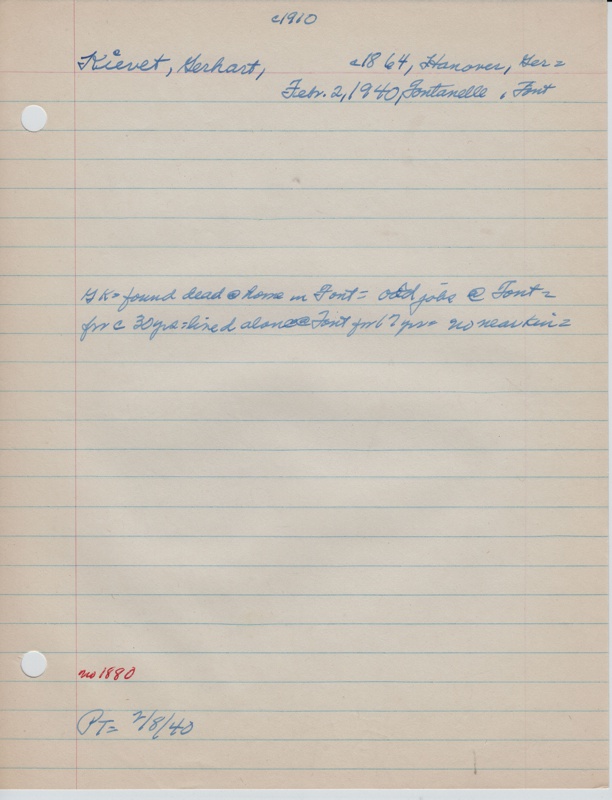 c1910
Kievet, Gerhart, c1864, Hanover, Ger=
Febr. 2, 1940, Fontanelle, Font
GK= found dead @ home in Font= odd jobs @ Font=
for c 30 yrs= lived alone @ Font for 67 yrs= no near kin=
no 1880
PT= 2/8/40